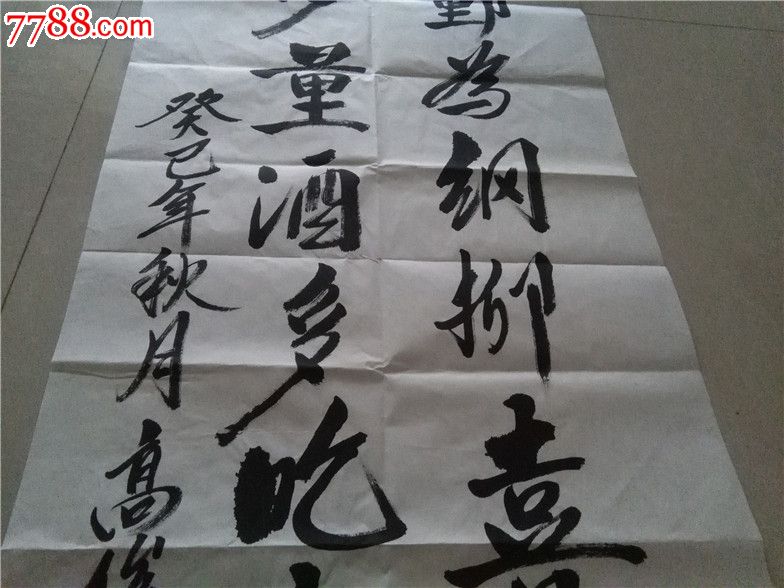 7788.com
為纲抑喜
量酒多吃
癸巳年秋月高